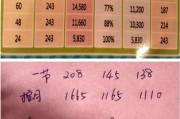 60 243 14,580 77% 11,200 187
48 243 11,660 88% 10,300 214
24 243 5,830 100% 5,830 243
一节 208 145 138
1665 1165 1110